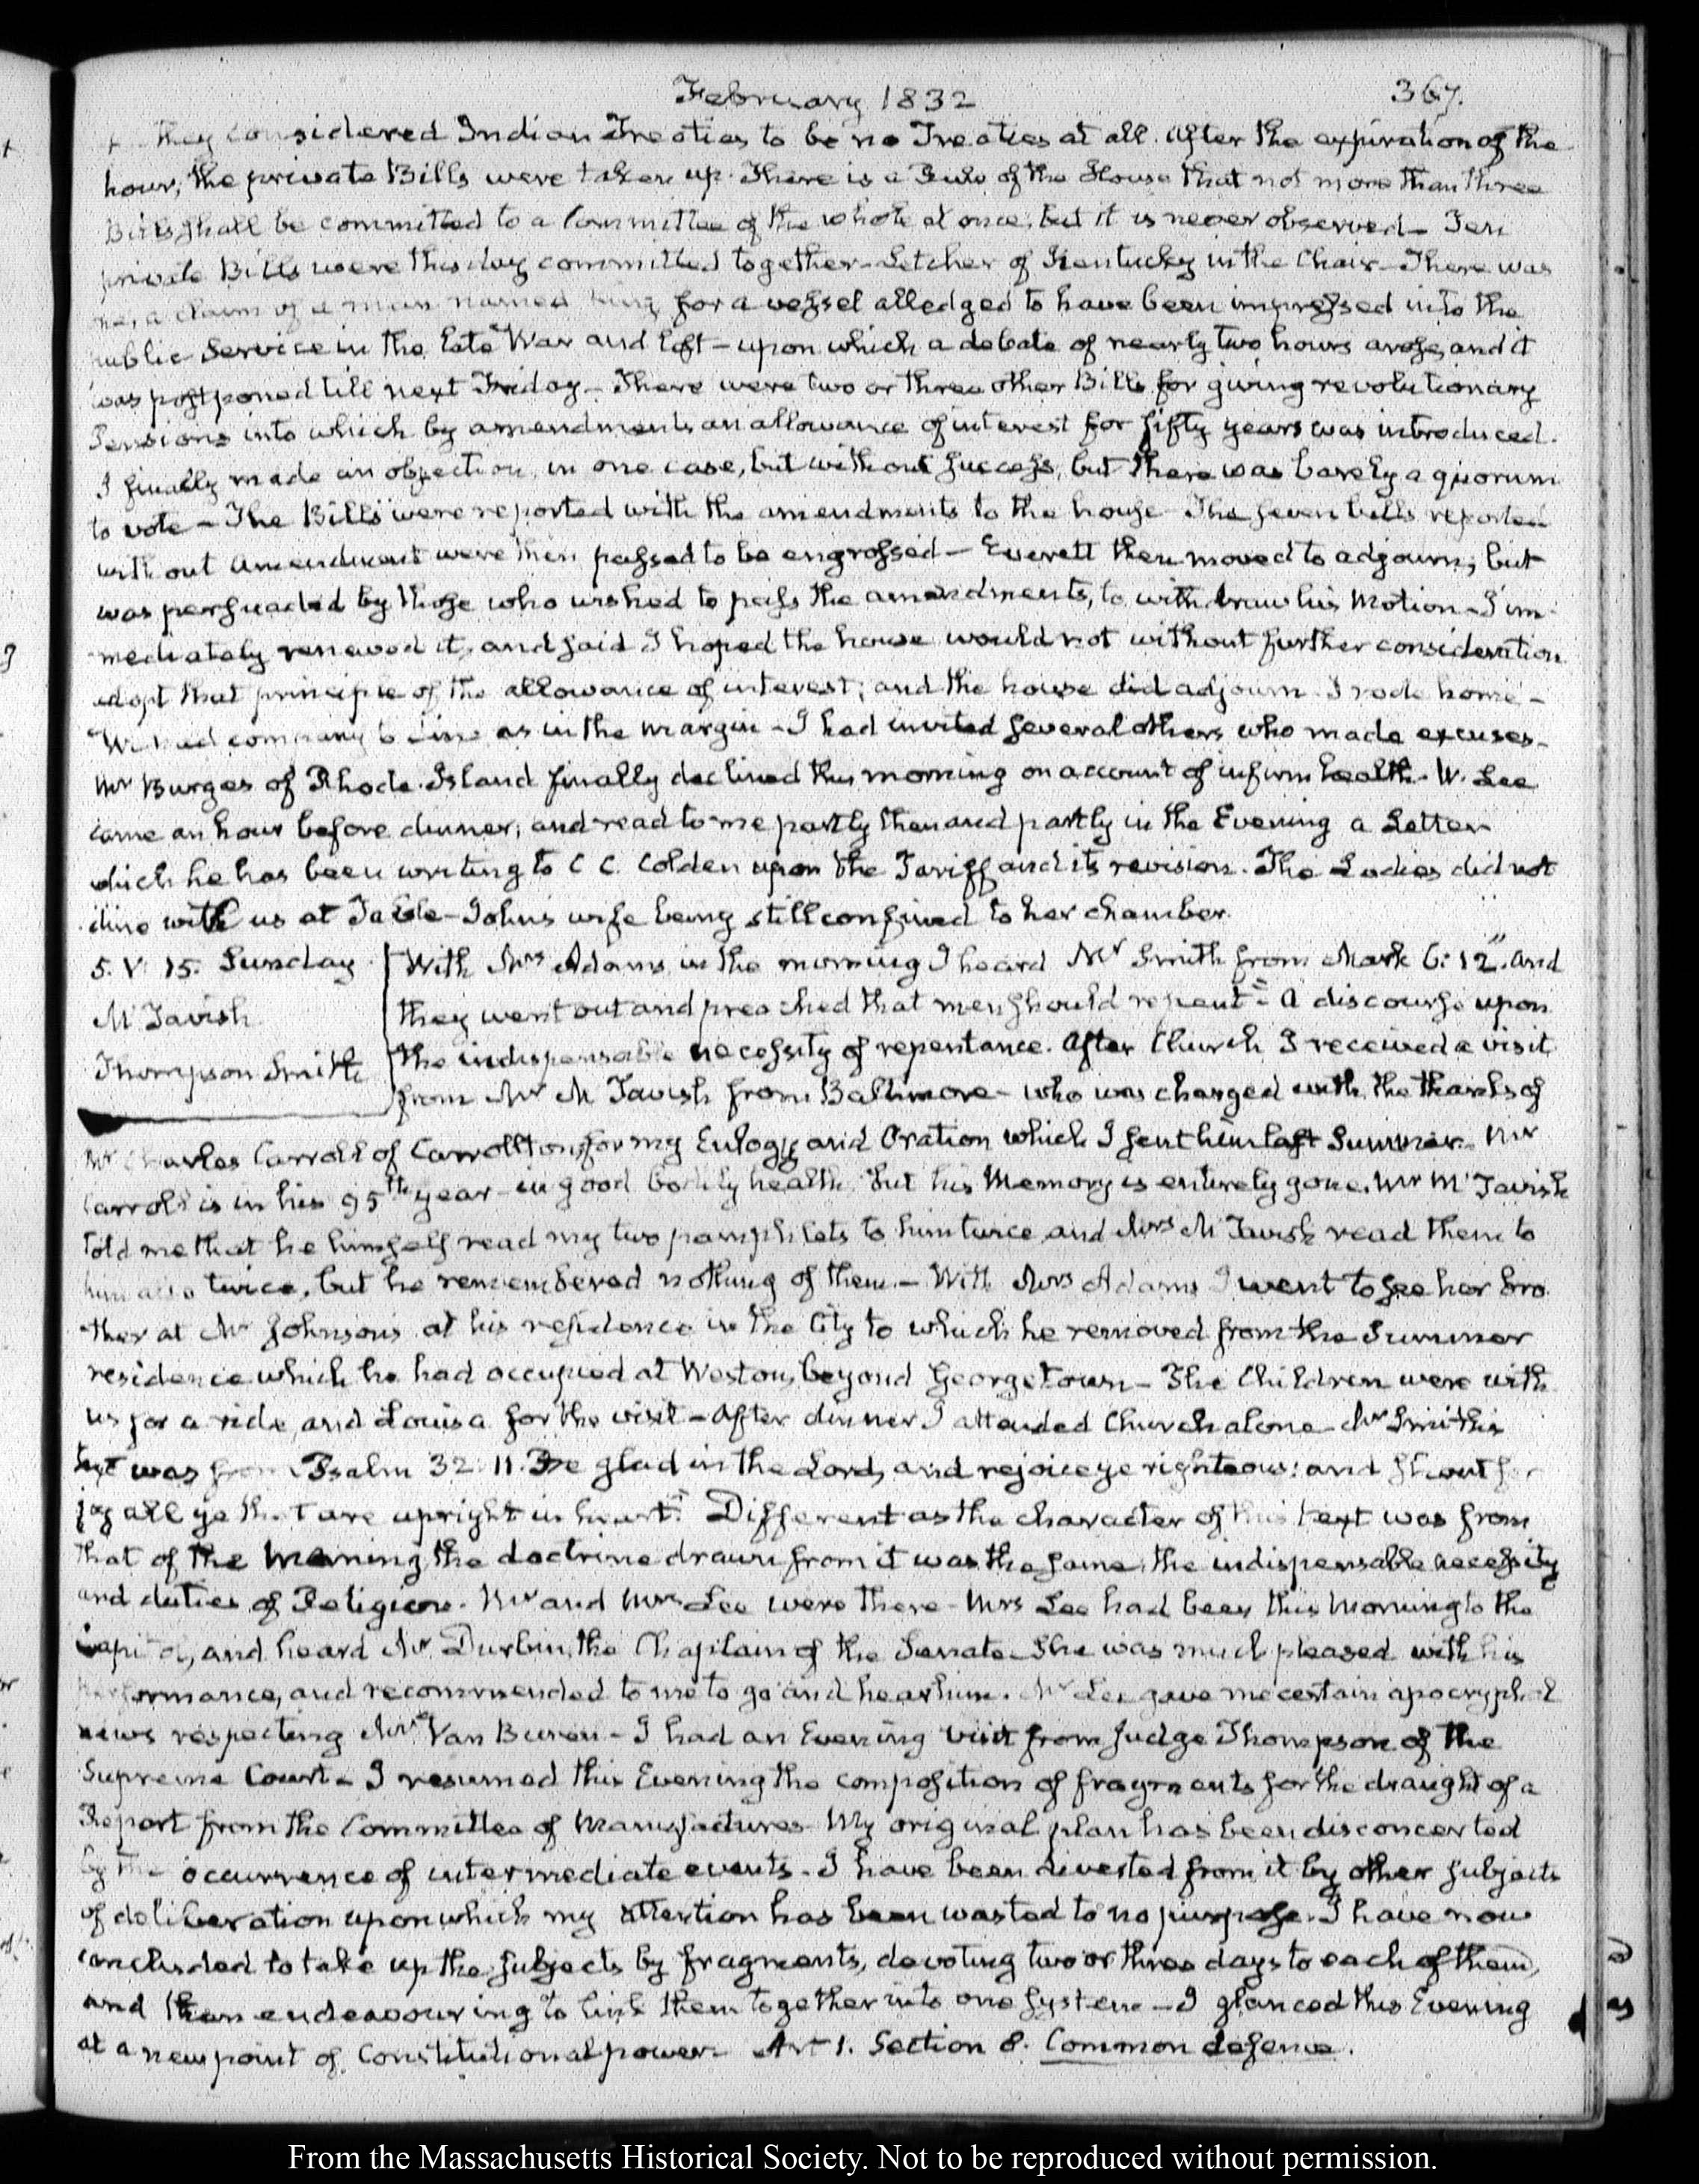 February 1832
367.
they considered Indian Treaties to be no Treaties at all. After the expiration of the
hour, the private Bills were taken up. There is a Rule of the House that not more than three
Bills shall be committed to a Committee of the whole at once; but it is never observed – Ten
private Bills were this day committed together – Letcher of Kentucky in the Chair – There was
one, a claim of a man named King for a vessel alledged to have been impressed into the
public Service in the late War and lost – upon which a debate of nearly two hours arose, and it
was postponed till next Friday – There were two or three other Bills for giving revolutionary
Pensions into which by amendments an allowance of interest for fifty years was introduced.
I finally made an objection, in one case, but without success, but there was barely a quorum
to vote – The Bills were reported with the amendments to the house – The seven bills reported
without Amendment were then passed to be engrossed – Everett then moved to adjourn; but
was persuaded by those who wished to pass the amendments, to withdraw his Motion – I im-
mediately renewed it, and said I hoped the house would not without further consideration
adopt that principle of the allowance of interest; and the house did adjourn. I rode home –
We had company to dine as in the margin – I had invited several others who made excuses –
Mr Burges of Rhode-Island finally declined this morning on account of infirm health. W. Lee
came an hour before dinner, and read to me partly then and partly in the Evening a Letter
which he has been writing to C C. Colden upon the Tariff and its revision. The Ladies did not
dine with us at Table – John's wife being still confined to her chamber.
5. V. 15. Sunday
McTavish
Thompson Smith
With Mrs Adams in the morning I heard Mr Smith from Mark 6:12. "And
they went out and preached that men should repent" – A discourse upon
the indispensable necessity of repentance. After Church I received a visit
from Mr McTavish from Baltimore – who was charged with the thanks of
Mr Charles Carroll of Carrollton, for my Eulogy and Oration which I sent him last Summer. Mr
Carroll is in his 95th year – in good bodily health, but his Memory is entirely gone. Mr McTavish
told me that he himself read my two pamphlets to him twice and Mrs McTavish read them to
him also twice, but he remembered nothing of them – With Mrs Adams I went to see her bro-
ther at Mr Johnson's at his residence in the City to which he removed from the Summer
residence which he had occupied at Weston, beyond Georgetown – The Children were with
us for a ride, and Louisa for the visit – After dinner I attended Church alone – Mr Smith's
text was from Psalm 32:11. Be glad in the Lord, and rejoice ye righteous: and shout for
joy all ye that are upright in heart." Different as the character of this text was from
that of the Morning, the doctrine drawn from it was the same, the indispensable necessity
and duties of Religion. Mr and Mrs Lee were there – Mrs Lee had been this Morning to the
Capitol, and heard Mr. Durbin, the Chaplain of the Senate – She was much pleased with his
performance, and recommended to me to go and hear him. Mr Lee gave me certain apocryphal
news respecting Mr Van Buren – I had an Evening visit from Judge Thompson of the
Supreme Court – I resumed this Evening the composition of fragments for the draught of a
Report from the Committee of Manufactures – My original plan has been disconcerted
by the occurrence of intermediate events – I have been diverted from it by other subjects
of deliberation upon which my attention has been wasted to no purpose. I have now
concluded to take up the subjects by fragments, devoting two or three days to each of them,
and then endeavouring to link them together into one system – I glanced this Evening
at a new point of Constitutional power – Art 1. Section 8. Common defence.
From the Massachusetts Historical Society. Not to be reproduced without permission.